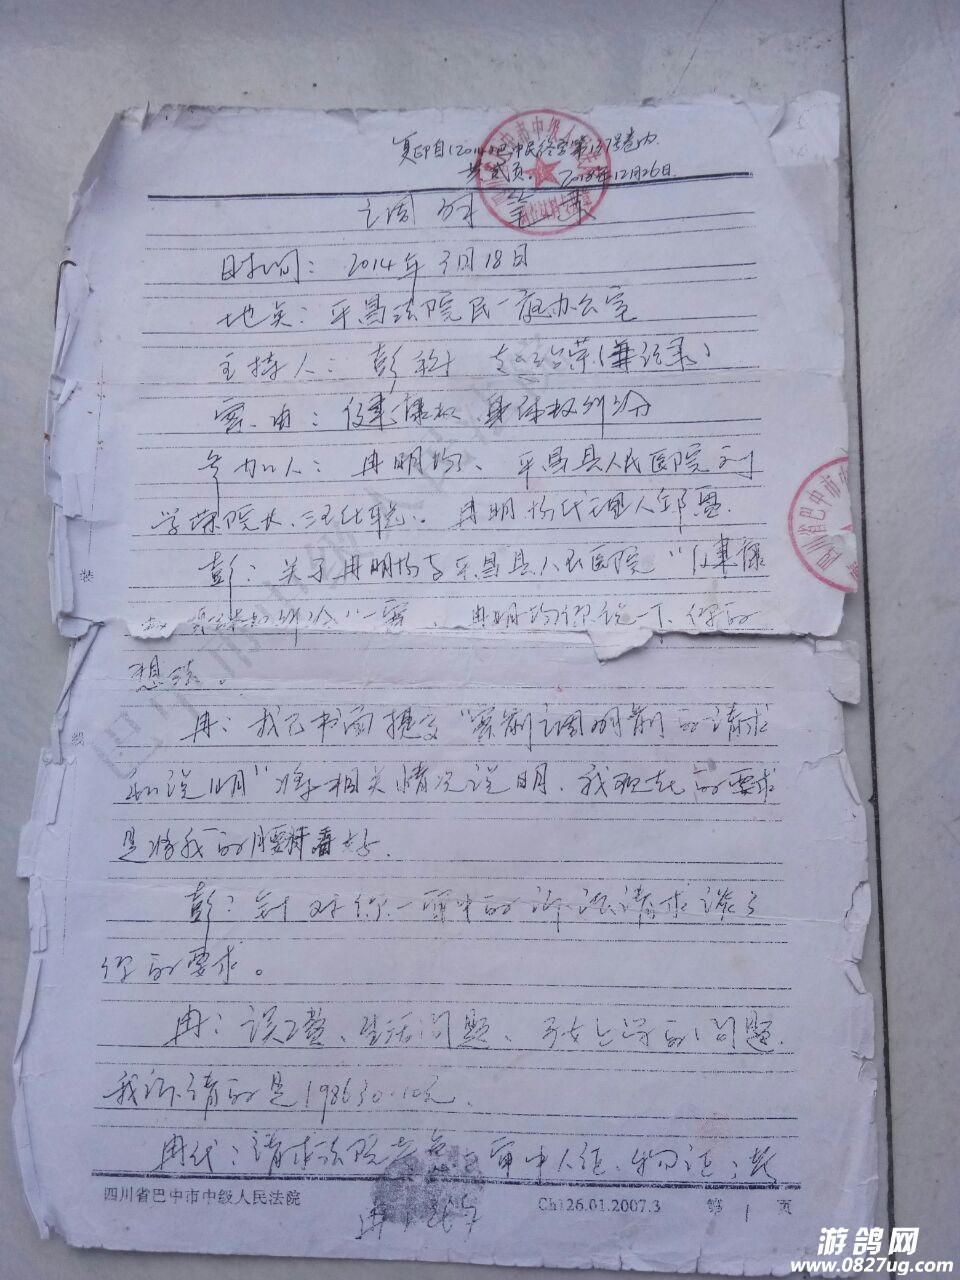 复印自(2014)巴中民终字第137号卷内
共贰页。 2018年12月26日.
调解笔录
时间: 2014年3月18日
地点: 平昌法院民一庭办公室
主持人: 彭 (兼记录)
案由: 健康权、身体权纠纷
参加人: 冉明均、平昌县人民医院刘
学荣院长、 冉明均代理人
彭: 关于冉明均与平昌县人民医院"健康
权、身体权纠纷"一案, 冉明均你说一下你的
想法。
冉: 我已书面提交"案前调解前的请求
和说明"将相关情况说明, 我现在的要求
是将我的腰椎看好.
彭: 针对你一审中的诉讼请求谈
你的要求。
冉: 误工费、生活问题、子女上学的问题.
我诉请的是198630.10元.
冉代: 请求法院 审中人证、物证
四川省巴中市中级人民法院
Ch126.01.2007.3
第 1 页
装
线
四川省巴中市
游鸽网
www.0827ug.com